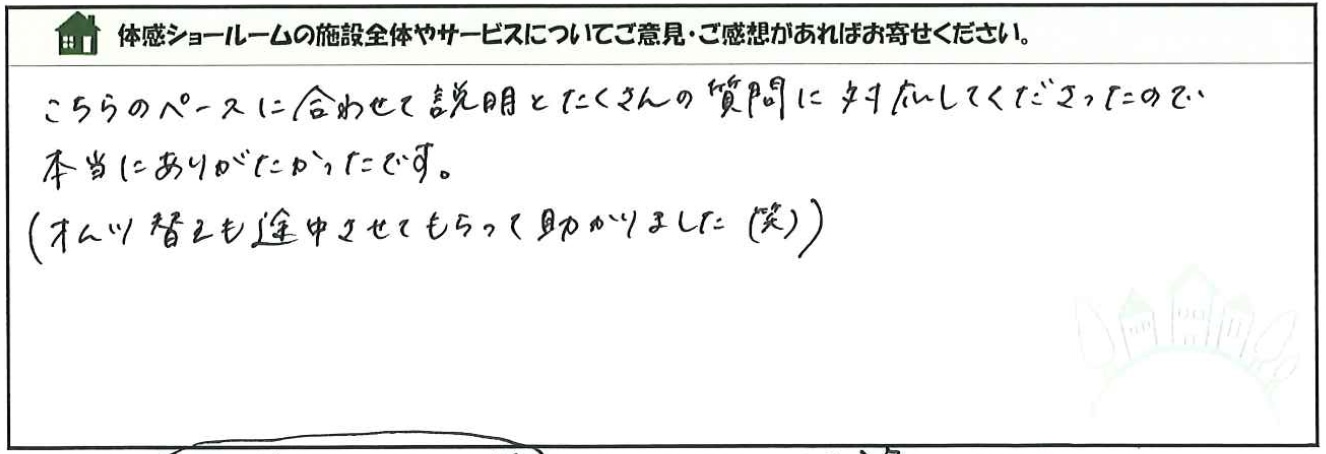 体感ショールームの施設全体やサービスについてご意見・ご感想があればお寄せください。
こちらのペースに合わせて説明とたくさんの質問に対応してくださったので
本当にありがたかったです。
(オムツ替えも途中させてもらって助かりました(笑))